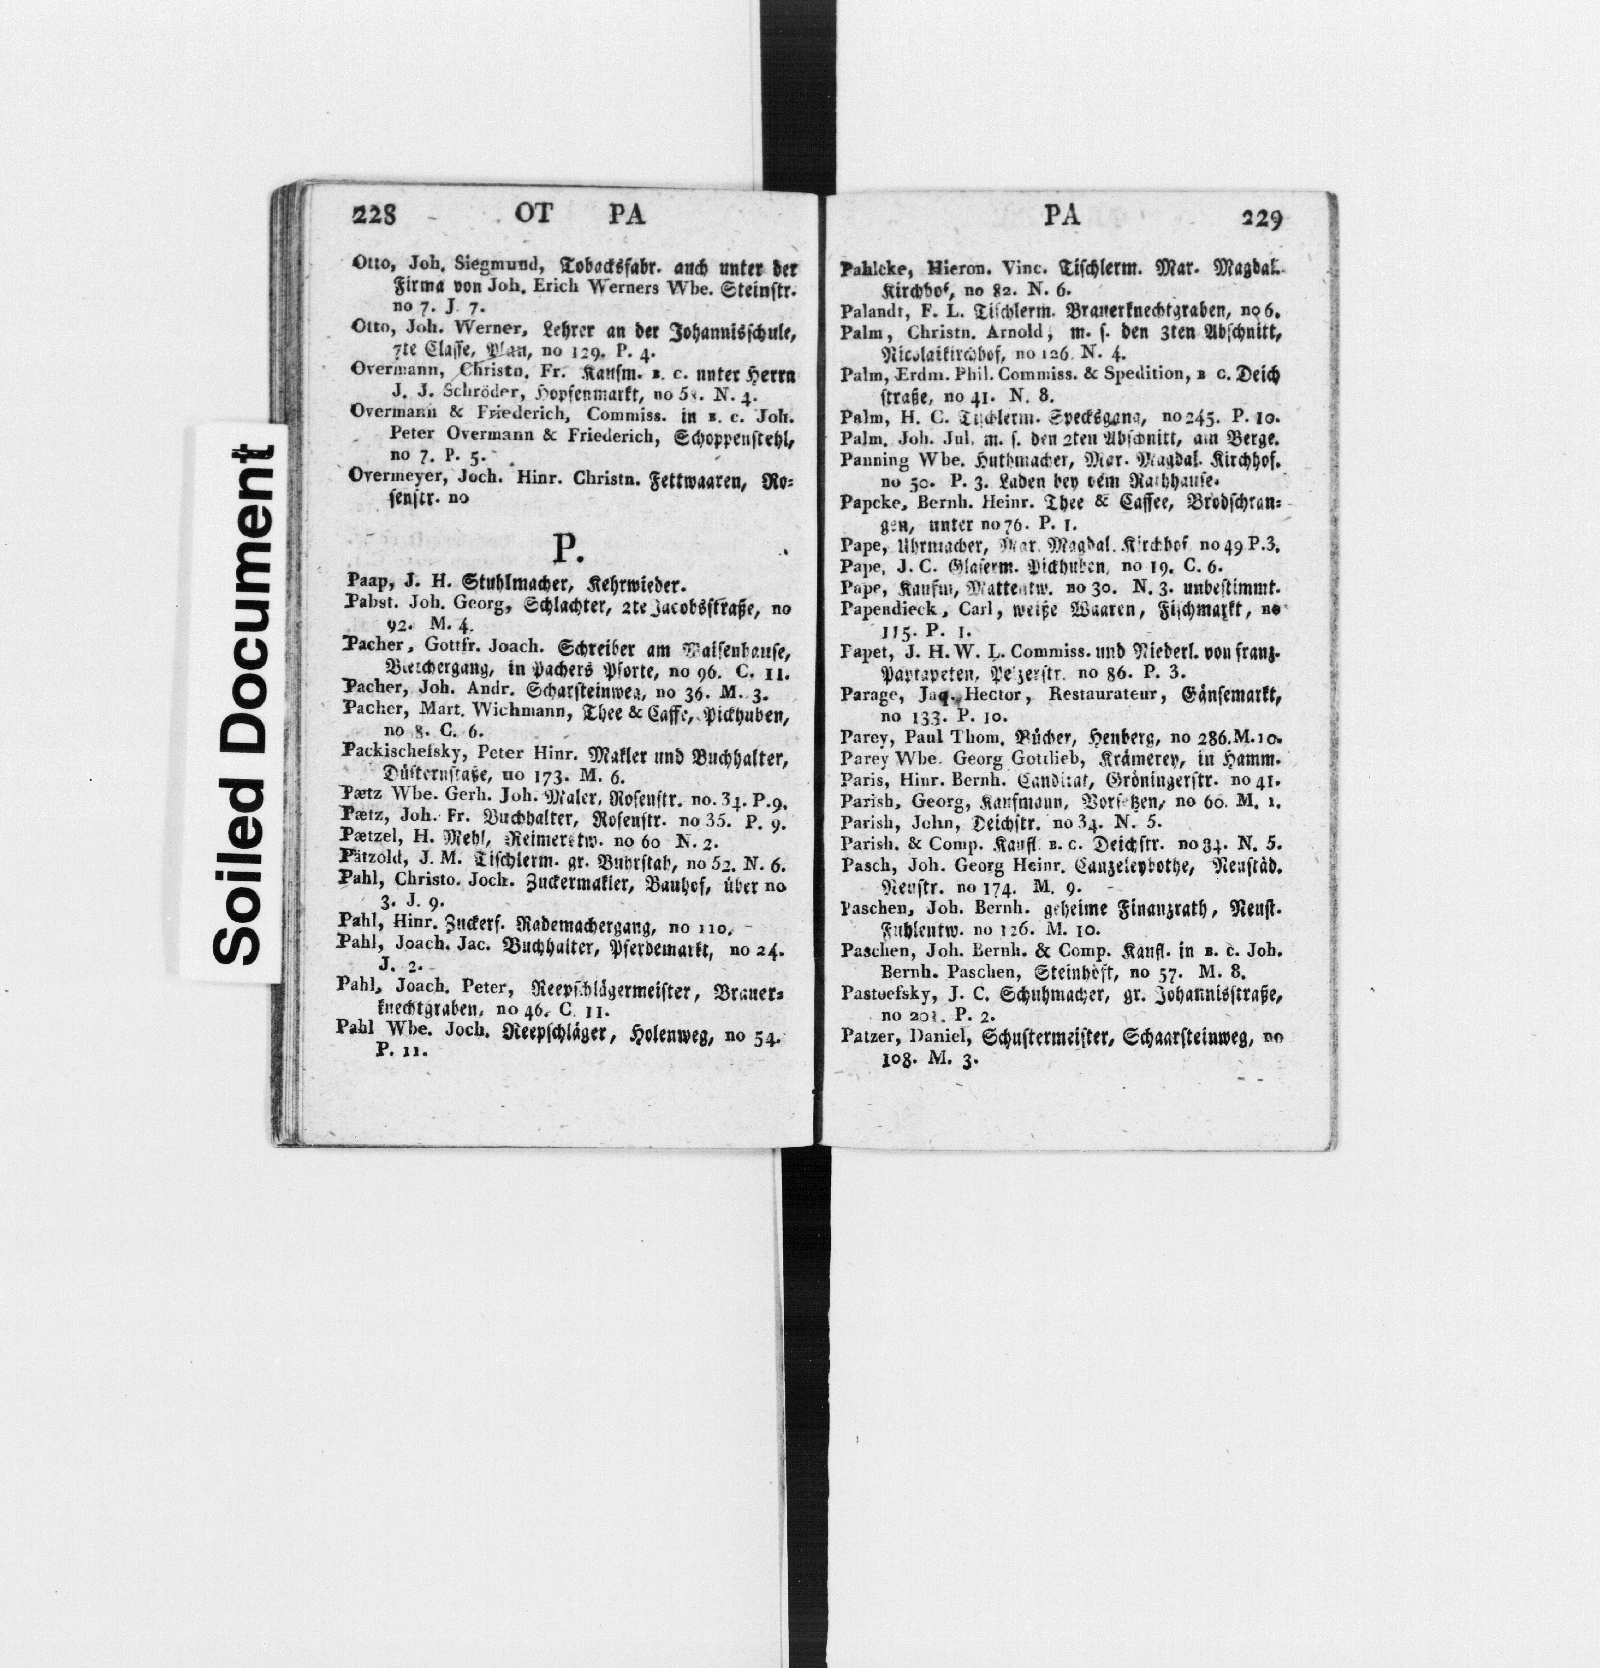 Soiled Document
228 OT PA
Otto, Joh. Siegmund, Tobacksfabr. auch unter der
Firma von Joh. Erich Werners Wbe. Steinstr.
no 7. J. 7.
Otto, Joh. Werner, Lehrer an der Johannisschule,
7te Classe, Plan, no 129. P. 4.
Overmann, Christn. Fr. Kaufm. B. C. unter Herrn
J. J. Schröder, Hopfenmarkt, no N. 4.
Overmann & Friederich, Commiss. in B. C. Joh.
Peter Overmann & Friederich, Schoppenstehl,
no 7. P. 5.
Overmeyer, Joch. Hinr. Christn. Fettwaaren, Ro-
senstr. no
P.
Paap, J. H. Stuhlmacher, Kehrwieder.
Pabst. Joh. Georg, Schlachter, 2te Jacobsstraße, no
92. M. 4.
Pacher, Gottfr. Joach. Schreiber am Waisenhause,
in Pachers Pforte, no 96. C. 11.
Pacher, Joh. Andr. Scharsteinweg, no 36. M. 3.
Pacher, Mart. Wichmann, Thee & Caffe, Pickhuben,
no 8. C. 6.
Packischefsky, Peter Hinr. Makler und Buchhalter,
Düsternstaße, no 173. M. 6.
Pætz Wbe. Gerh. Joh. Maler, Rosenstr. no. 34. P. 9.
Pætz, Joh. Fr. Buchhalter, Rosenstr. no 35. P. 9.
Pætzel, H. Mehl, Reimerstw. no 60 N. 2.
Pätzold, J. M. Tischlerm. gr. Buhrstah, no 52. N. 6.
Pahl, Christo. Joch. Zuckermakler, Bauhof, über no
3. J. 9.
Pahl, Hinr. Zuckerf. Rademachergang, no 110.
Pahl, Joach. Jac. Buchhalter, Pferdemarkt, no 24.
J. 2.
Pahl, Joach. Peter, Reepschlägermeister, Brauer-
knechtgraben, no 46. C. 11.
Pahl Wbe. Joch. Reepschläger, Holenweg, no 54.
P. 11.
PA 229
Pahlcke, Hieron. Vinc. Tischlerm. Mar. Magdal.
Kirchhof, no 82. N. 6.
Palandt, F. L. Tischlerm. Brauerknechtgraben, no 6.
Palm, Christn. Arnold, m. s. den 3ten Abschnitt,
Nicolaikirchhof, no 126. N. 4.
Palm, Erdm. Phil. Commiss. & Spedition, B C. Deich
straße, no 41. N. 8.
Palm, H. C. Tischlerm. Specksgang, no 245. P. 10.
Palm. Joh. Jul. m. s. den 2ten Abschnitt, am Berge.
Panning Wbe. Huthmacher, Mar. Magdal. Kirchhof.
no 50. P. 3. Laden bey dem Rathhause.
Papcke, Bernh. Heinr. Thee & Caffee, Brodschran-
gen, unter no 76. P. 1.
Pape, Uhrmacher, Mar. Magdal. Kirchhof no 49 P. 3.
Pape, J. C. Glaserm. Pickhuben, no 19. C. 6.
Pape, Kaufm, Mattentw. no 30. N. 3. unbestimmt.
Papendieck, Carl, weiße Waaren, Fischmarkt, no
115. P. 1.
Papet, J. H. W. L. Commiss. und Niederl. von franz.
Paptapeten, Pelzerstr. no 86. P. 3.
Parage, Jaq. Hector, Restaurateur, Gänsemarkt,
no 133. P. 10.
Parey, Paul Thom. Bücher, Henberg, no 286. M. 10.
Parey Wbe. Georg Gottlieb, Krämerey, in Hamm.
Paris, Hinr. Bernh. Candidat, Gröningerstr. no 41.
Parish, Georg, Kaufmann, Vorsetzen, no 60. M. 1.
Parish, John, Deichstr. no 34. N. 5.
Parish. & Comp. Kaufl. B. C. Deichstr. no 34. N. 5.
Pasch, Joh. Georg Heinr. Canzeleybothe, Neustäd.
Neustr. no 174. M. 9.
Paschen, Joh. Bernh. geheime Finanzrath, Neust.
Fuhlentw. no 126. M. 10.
Paschen, Joh. Bernh. & Comp. Kaufl. in B. C. Joh.
Bernh. Paschen, Steinhöft, no 57. M. 8.
Pastoefsky, J. C. Schuhmacher, gr. Johannisstraße,
no P. 2.
Patzer, Daniel, Schustermeister, Schaarsteinweg, no
108. M. 3.